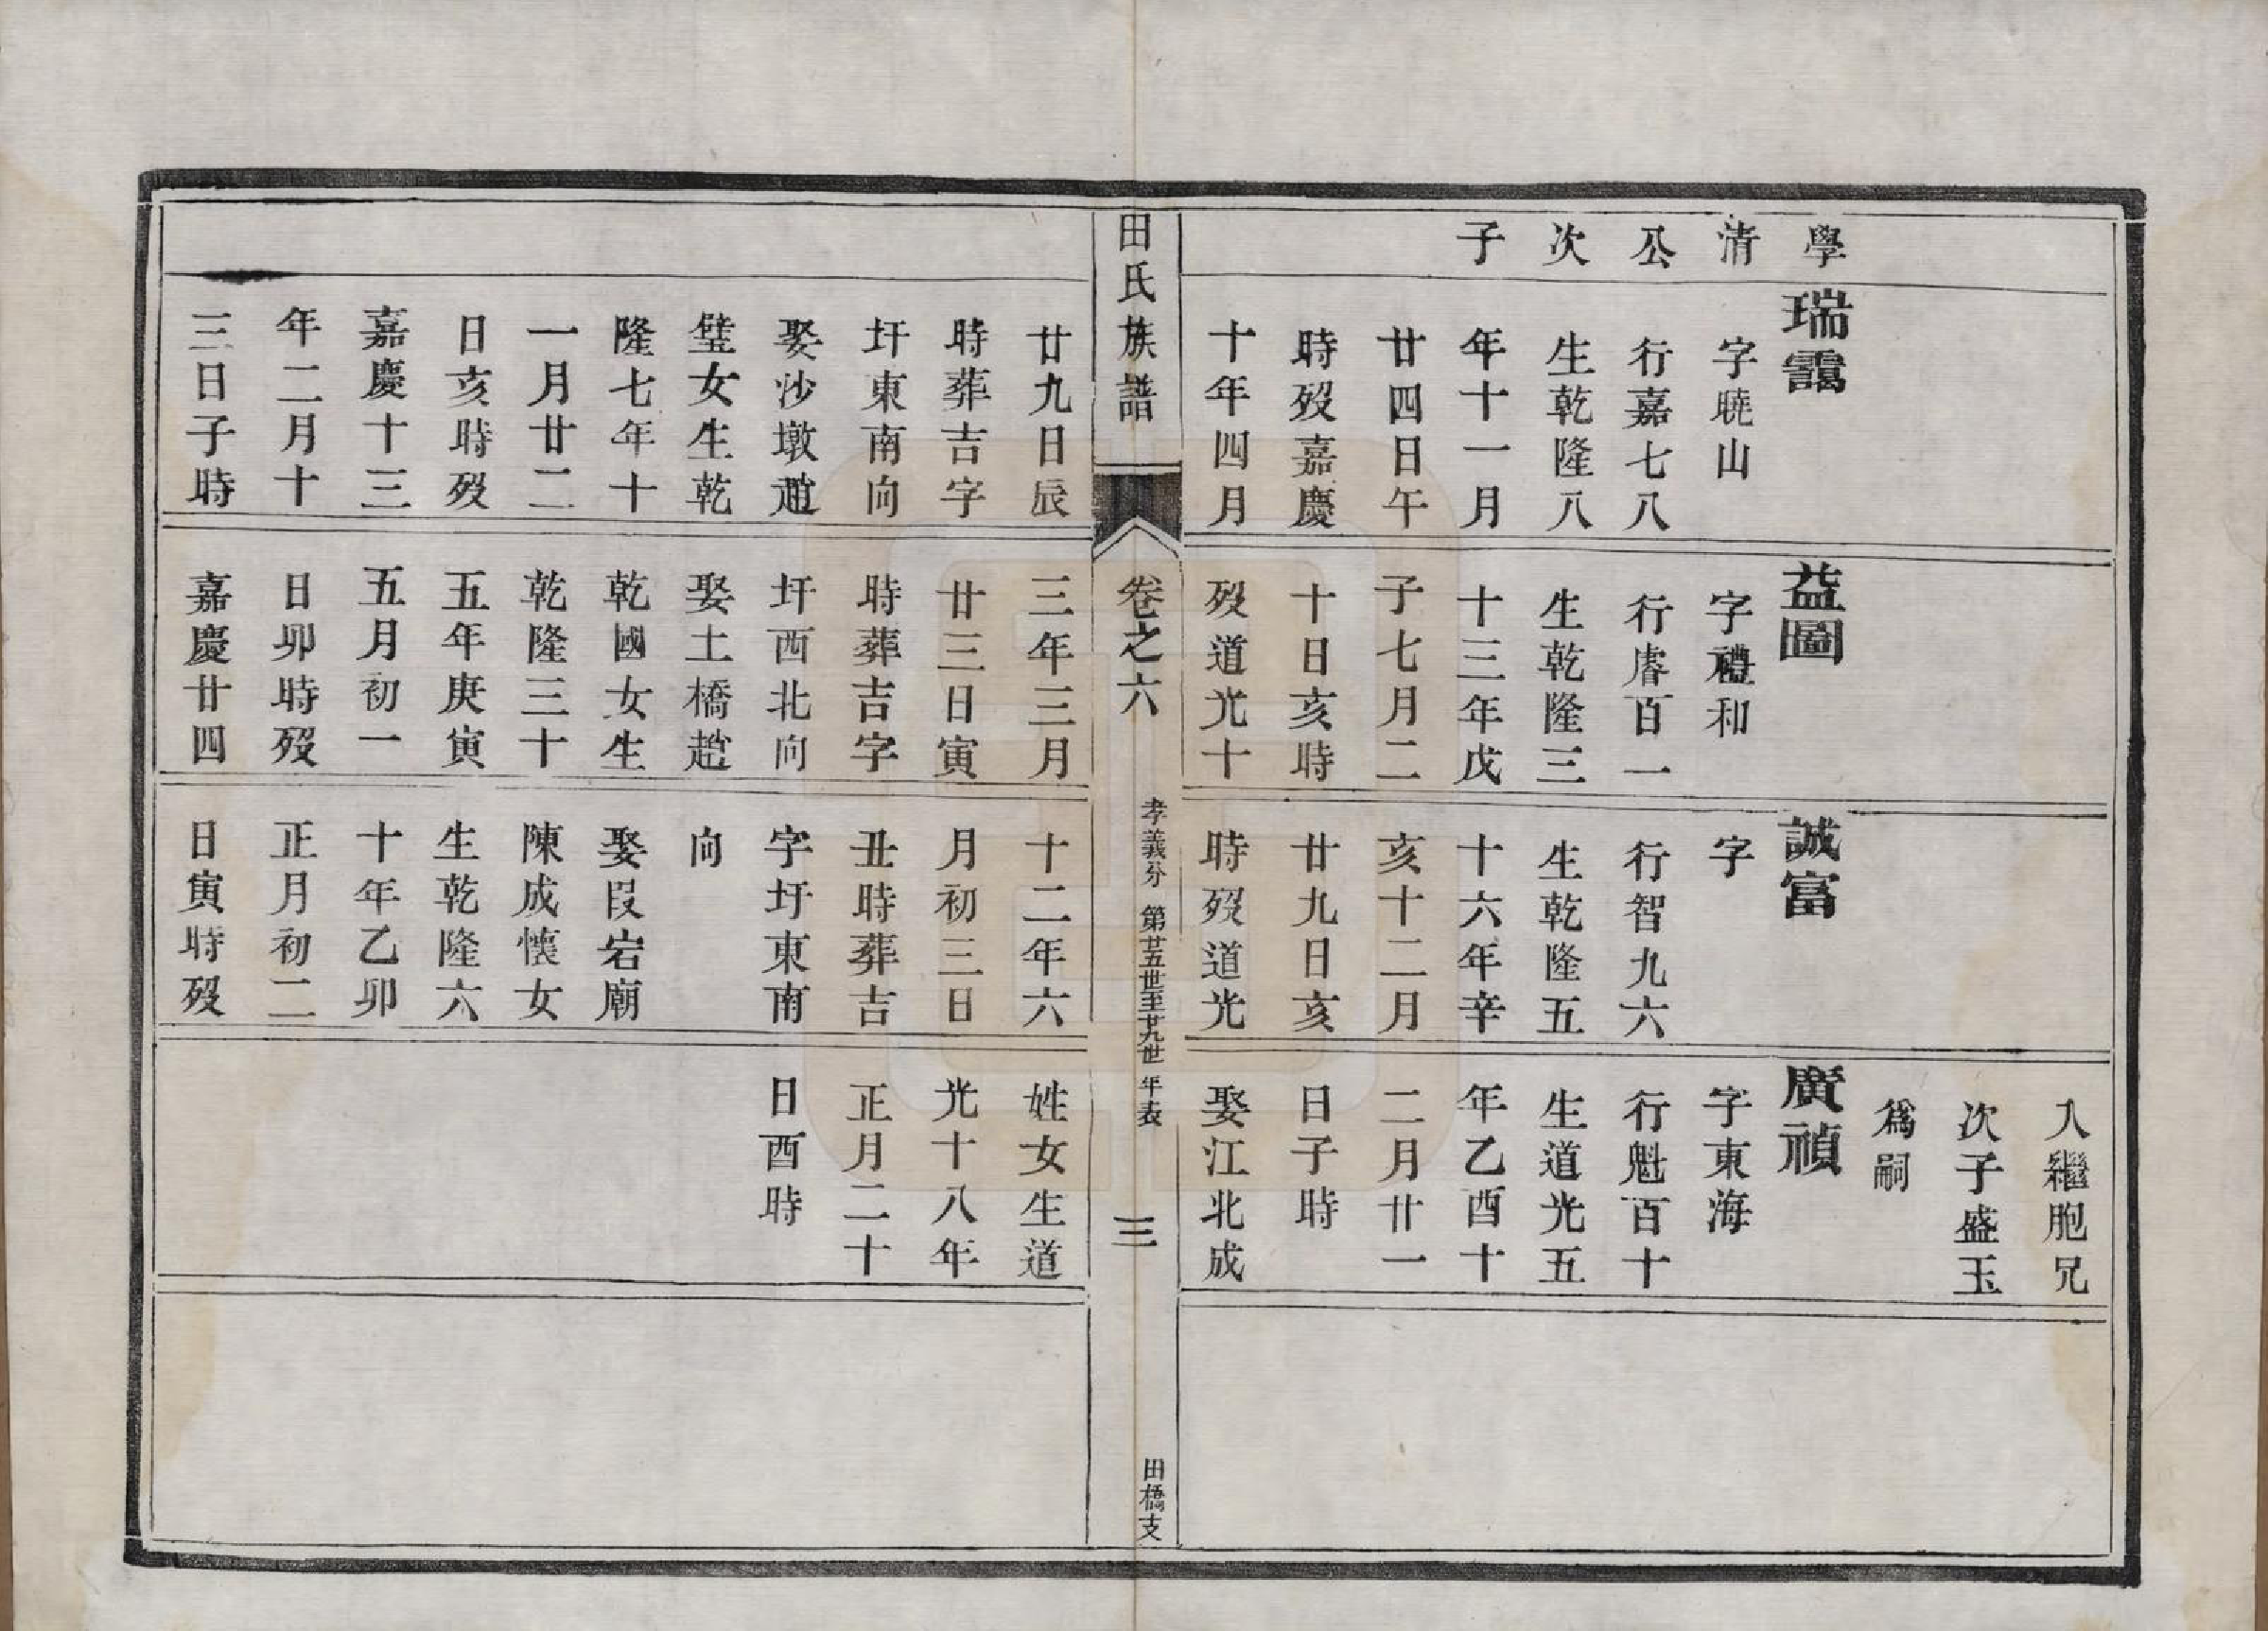 學
清
公
次
子
瑞靄
字曉山
行嘉七八
生乾隆八
年十一月
廿四日午
時歿嘉慶
十年四月
益圖
字禮和
行睿百一
生乾隆三
十三年戊
子七月二
十日亥時
歿道光十
誠富
字
行智九六
生乾隆五
十六年辛
亥十二月
廿九日亥
時歿道光
入繼胞兄
次子盛玉
爲嗣
廣禎
字東海
行魁百十
生道光五
年乙酉十
二月廿一
日子時
娶江北成
田氏族譜
卷之六
孝義分 第廿五世至廿九世 年表
三
田橋支
廿九日辰
時葬吉字
圩東南向
娶沙墩趙
璧女生乾
隆七年十
一月廿二
日亥時歿
嘉慶十三
年二月十
三日子時
三年三月
廿三日寅
時葬吉字
圩西北向
娶土橋趙
乾國女生
乾隆三十
五年庚寅
五月初一
日卯時歿
嘉慶廿四
十二年六
月初三日
丑時葬吉
字圩東南
向
娶段岩廟
陳成懷女
生乾隆六
十年乙卯
正月初二
日寅時歿
姓女生道
光十八年
正月二十
日酉時